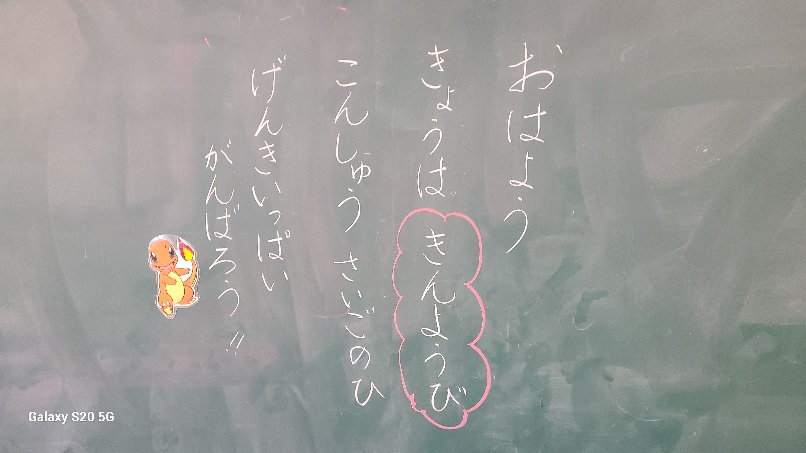 おはよう
きょうは きんようび
こんしゅう さいごのひ
げんきいっぱい
がんばろう!!
Galaxy S20 5G